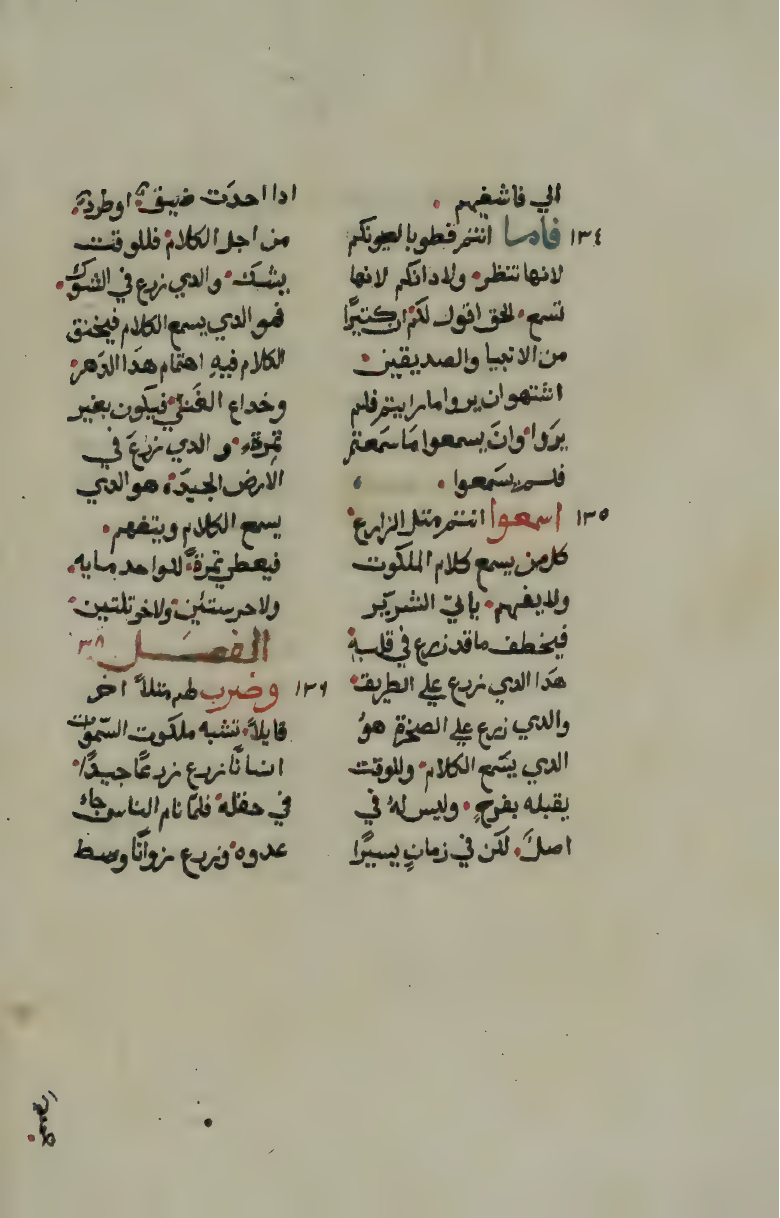 الي فاشفيهم
١٣٤ فاما انتم فطوبا لعيونكم
لانها تنظر ولادانكم لانها
تسمع الحق اقول لكم ان كتيرًا
من الانبيا والصديقين
اشتهوا ان يروا ما رايتم فلم
يروا وان يسمعوا ما سمعتم
فلم يسمعوا
١٣٥ اسمعوا انتم متل الزارع
كل من يسمع كلام الملكوت
ولا يفهم ياتي الشرير
فيخطف ما قد زرع في قلبه
هدا الدي زرع علي الطريق
والدي زرع علي الصخرة هو
الدي يسمع الكلام وللوقت
يقبله بفرح وليس له في
اصل لكن في زمان يسيرًا
ادا احدت ضيق او طرد
من اجل الكلام فللوقت
يشك والدي زرع في الشوك
فهو الدي يسمع الكلام فيخنق
الكلام فيه اهتمام هدا الدهر
وخداع الغني فيكون بغير
تمرة والدي زرع في
الارض الجيدة هو الدي
يسمع الكلام ويتفهم
فيعطي تمرة لواحد مايه
ولاخر ستين ولاخر تلتين
الفصل ٣٨
١٣٦ وضرب لهم متلاً اخر
قايلاً تشبه ملكوت السموات
انسانًا زرع زرعًا جيدًا
في حقله فلما نام الناس جاء
عدوه وزرع زوانًا وسط